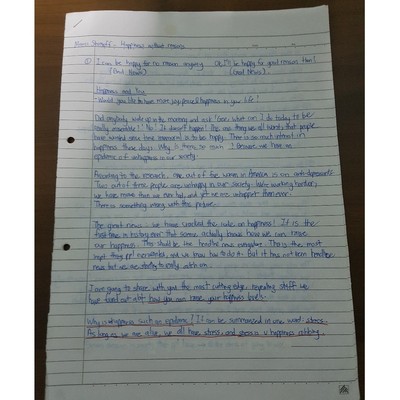 Marci Shimoff - Happiness without reason
① I can be happy for no reason anyway. Or, I'll be happy for good reasons then!
(Bad News) (Good News).
Happiness and love
- Would you like to have more joy, peace & happiness in your life?
Did anybody wake up in the morning and ask 'Gee, what can I do today to be
really miserable?' No! It doesn't happen! The one thing we all want, that people
have wanted since time immemorial is to be happy. There is so much interest in
happiness these days. Why is there so much? Because we have an
epidemic of unhappiness in our society.
According to the research, one out of the women in America is on anti-depressants.
Two out of three people are unhappy in our society - we're working harder,
we have more than we ever had, and yet we are unhappier than ever.
There is something wrong with this picture.
The great news - we have cracked the codes on happiness! It is the
first time in history ever that some actually know how we can raise
our happiness. This should be the headline news everywhere. This is the most
important and we know how to do it. But it has not been headline
news but we are starting to really catch on.
I am going to share with you the most cutting edge, stuff we
have found out abt how you can raise your happiness levels.
Why is unhappiness such an epidemic? It can be summarised in one word - stress.
As long as we are alive, we all have stress, and stress is happiness robbing.